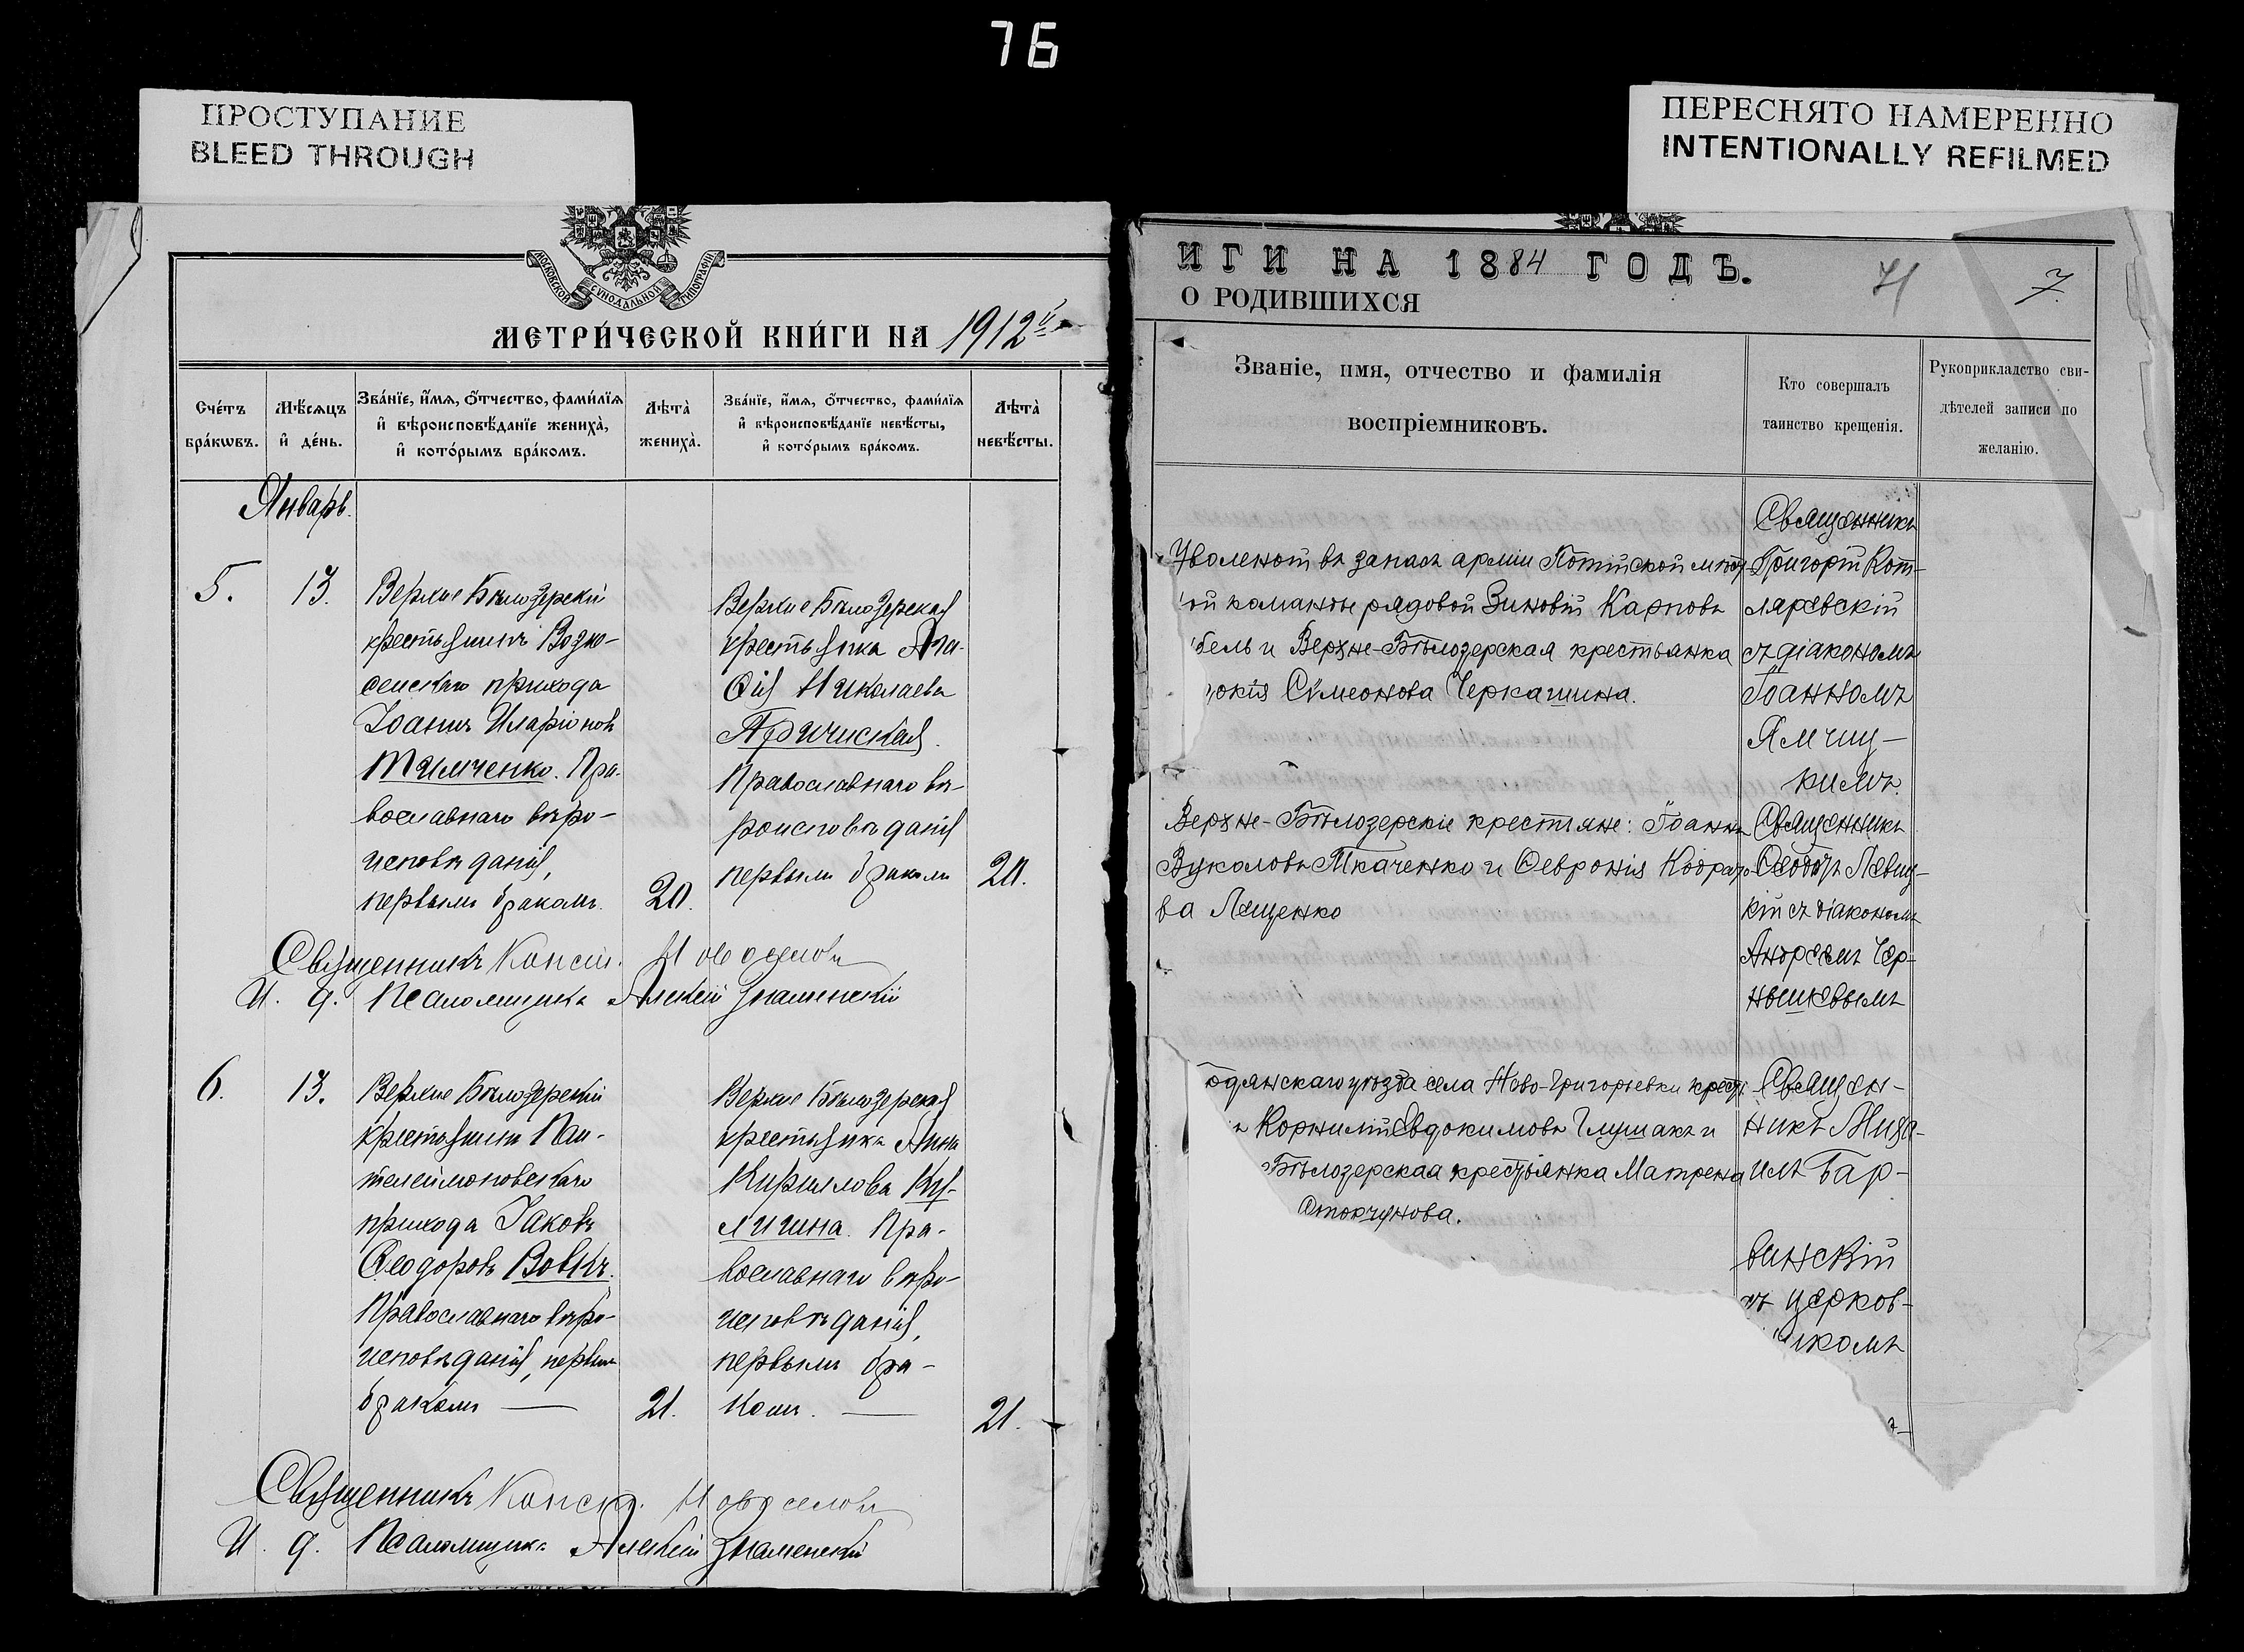 76
ПРОСТУПАНИЕ
BLEED THROUGH
ПЕРЕСНЯТО НАМЕРЕННО
INTENTIONALLY REFILMED
МОСКОВСКОЙ СУНОДАЛЬНОЙ ТИПОГРАФІИ
МЕТРИ́ЧЕСКОЙ КНИ́ГИ НА 1912
Сче́тъ
бра́кѡвъ.
Мѣ́сѧцъ
и҆ де́нь.
Зва́нїе, и҆́мѧ, ѻ҆́тчество, фами́лїѧ
и҆ вѣроисповѣ́данїе жениха̀,
и҆ кото́рымъ бра́комъ.
Лѣта̀
жениха̀.
Зва́нїе, и҆́мѧ, ѻ҆́тчество, фами́лїѧ
и҆ вѣроисповѣ́данїе невѣ́сты,
и҆ кото́рымъ бра́комъ.
Лѣта̀
невѣ́сты.
Январь.
5.
13.
Верхне Бѣлозерскій
крестьянинъ Возне-
сенскаго прихода
Іоаннъ Иларіоновъ
Тимченко. Пра-
вославнаго вѣро-
исповѣданія,
первымъ бракомъ.
20.
Верхне Бѣлозерская
крестьянка
Николаева
Православнаго вѣ-
роисповѣданія
первымъ бракомъ
20.
Священникъ Конст. Новоселовъ
И. д. Псаломщика Алексій Знаменскій
6.
13.
Верхне Бѣлозерскій
крестьянинъ Пан-
телеймоновскаго
прихода Іаковъ
Ѳеодоровъ Вовкъ.
Православнаго вѣро-
исповѣданія, первымъ
бракомъ —
21.
Верхне Бѣлозерская
крестьянка Анна
Кириллова Ку-
личина. Пра-
вославнаго вѣро-
исповѣданія,
первымъ бра-
комъ. —
21.
Священникъ Конст. Новоселовъ
И. д. Псаломщика Алексій Знаменскій
ИГИ НА 1884 ГОДЪ.
О РОДИВШИХСЯ
71
7.
Званіе, имя, отчество и фамилія
воспріемниковъ.
Кто совершалъ
таинство крещенія.
Рукоприкладство сви-
дѣтелей записи по
желанію.
Уволеной въ запасъ арміи Потійской мѣст
ой команды рядовой Зиновій Карповъ
бель и Верхне-Бѣлозерская крестьянка
окія Симеонова Черкашина.
Священникъ
Григорій Кот-
ляревскій
съ діакономъ
Іоанномъ
Ямчиц-
кимъ.
Верхне-Бѣлозерскіе крестьяне: Іоаннъ
Вуколовъ Ткаченко и Ѳевронія Кодрато-
ва Лященко
Священникъ
Ѳеодоръ Левиц-
кій съ діакономъ
Андреемъ Чер-
нышевымъ
одянскаго уѣзда села Ново-Григорьевки крест
ъ Корнилій Евдокимовъ Глушакъ и
Бѣлозерская крестьянка Матрена
Стокчунова.
Священ-
никъ Миха-
илъ Бар-
винскій
съ церков-
икомъ